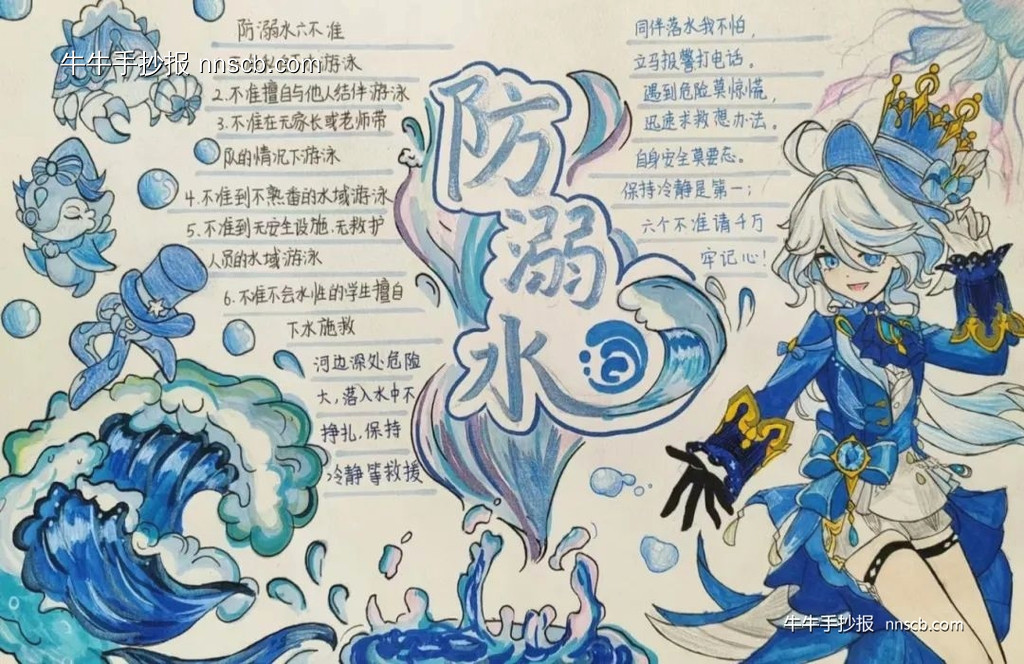 防溺水六不准
牛牛手抄报 nnscb.com
游泳
2.不准擅自与他人结伴游泳
3.不准在无家长或老师带
队的情况下游泳
4.不准到不熟番的水域游泳
5.不准到无安全设施、无救护
人员的水域游泳
6.不准不会水性的学生擅自
下水施救
河边深处危险
大,落入水中不
挣扎,保持
冷静等救援
防
溺
水
同伴落水我不怕,
立马报警打电话。
遇到危险莫惊慌,
迅速求救想办法。
自身安全莫要忘。
保持冷静是第一;
六个不准请千万
牢记心!
牛牛手抄报 nnscb.com